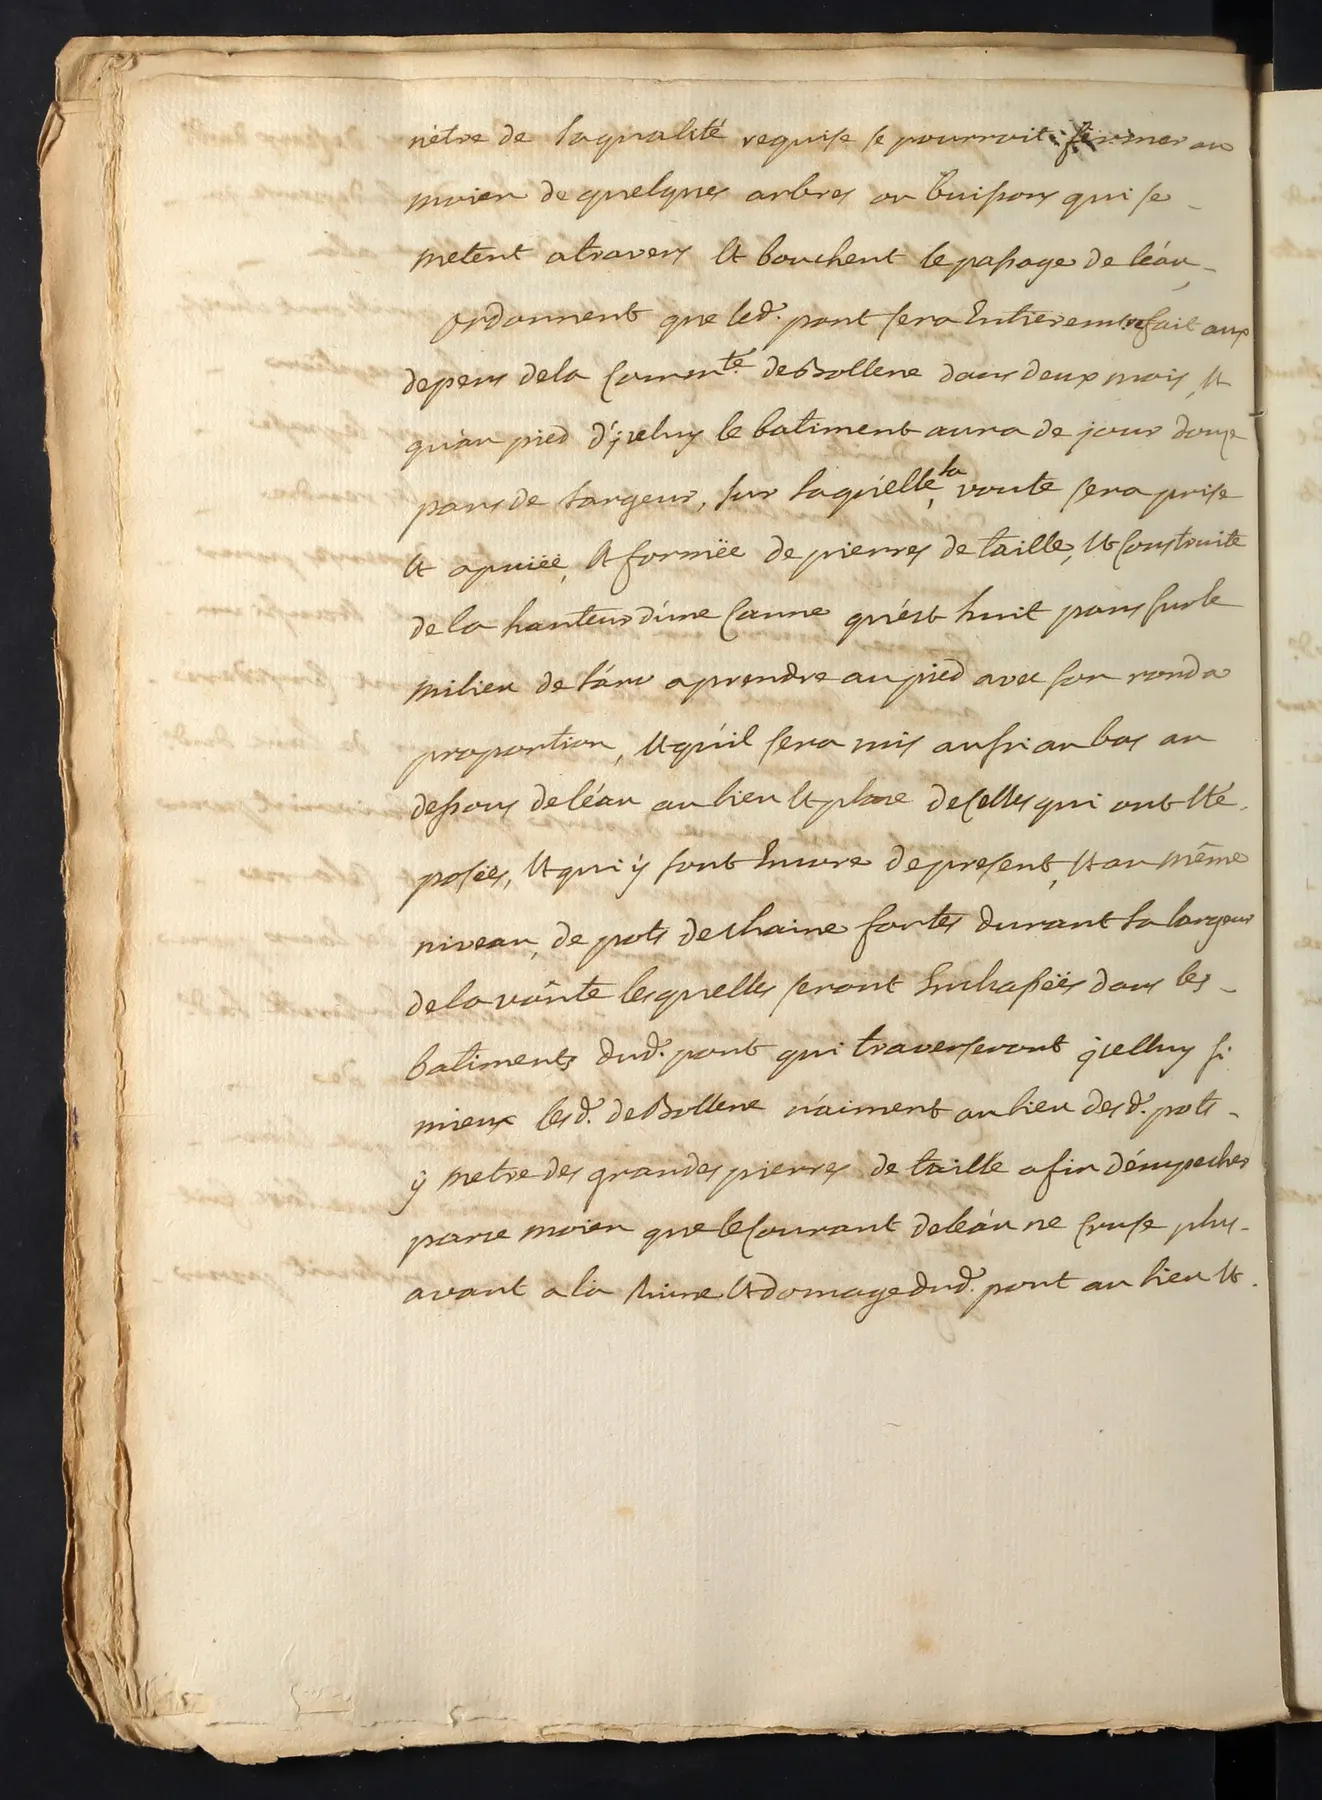 n'étre de la qualité requise se pourroit fermer au
moien de quelques arbres ou buissons qui se
metent atravers et bouchent le passage de léau,
ordonnent que led.^t pont sera Entierem.^t refait aux
depens dela Comm^té de Bollene dans deux mois, et
qu'au pied d'jceluy le batiment aura de jour douze
pans de largeur, sur laquelle la voute sera prise
et apuiée, et formée de pierres de taille, et Construite
de la hauteur d'une Canne qu'est huit pans sur le
milieu de l'arc aprendre au pied avec son ronda
proportion, et qu'il sera mis aussi au bas au
dessous de léau au lieu et place de Celles qui ont eté
posées, et qui ÿ sont Encore de present, et au même
niveau, de pots de chaine fortes durant la largeur
de la voûte lesquelles seront Enchassées dans les
batiments dud. pont qui traverseront jcelluy si
mieux lesd. de Bollene n'aiment au lieu desd. pots
ÿ metre des grandes pierres de taille afin d'émpecher
par ce moien que le Courant de léau ne Cruse plus
avant a la Ruine et domage dud. pont au lieu et